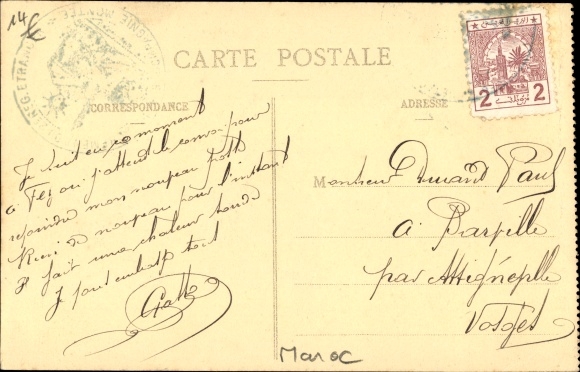 14 €
REG. ETRANGER
MONTEE
CARTE POSTALE
CORRESPONDANCE
ADRESSE
2 2
Je suit en ce moment
à Fez ou j'attend le convoi pour
rejoindre mon nouveau poste
Rien de nouveau pour l'instant
Il fait une chaleur lourde
Je vous embrasse tout
Monsieur Durand Paul
à Barville
par Attignéville
Vosges
Maroc